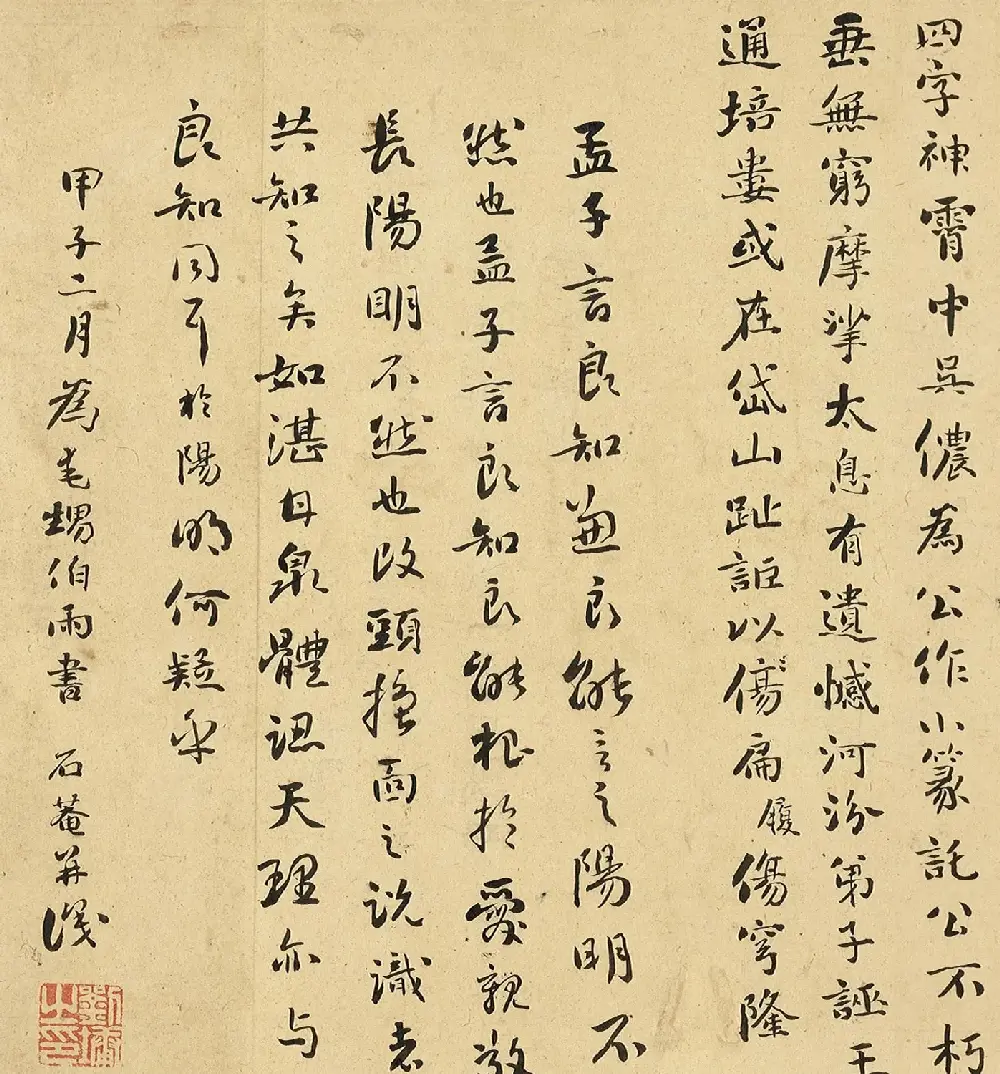 四字神霄中吳儂為公作小篆託公不朽
垂無窮摩挲太息有遺憾河汾弟子誣王
通培婁或在岱山趾詎以傷扁履傷穹隆
孟子言良知兼良能言之陽明不
然也孟子言良知良能根於愛親敬
長陽明不然也改頭換面之說識者
共知之矣如湛甘泉體認天理亦與
良知同耳於陽明何疑乎
甲子二月為毛甥伯雨書 石菴并識
劉墉之印